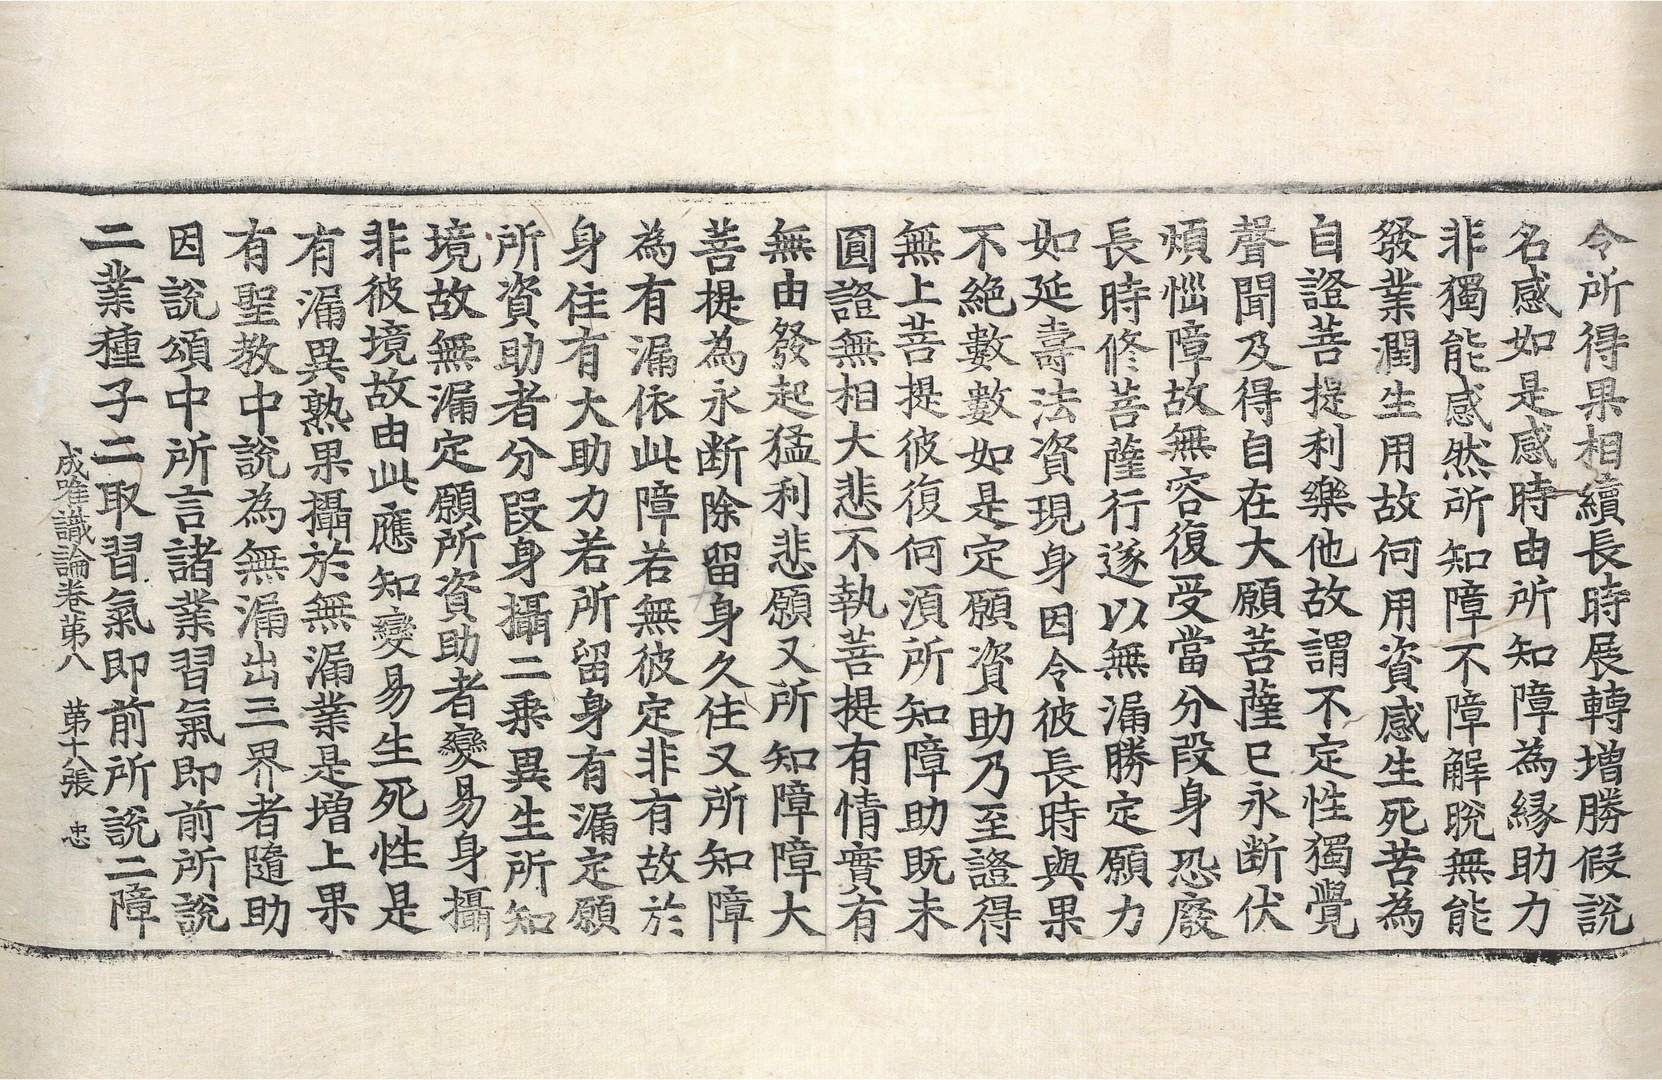 令所得果相續長時展轉増勝假說
名感如是感時由所知障為縁助力
非獨能感然所知障不障解脫無能
發業潤生用故何用資感生死苦為
自證菩提利樂他故謂不定性獨覺
聲聞及得自在大願菩薩已永断伏
煩惱障故無容復受當分段身恐廢
長時修菩薩行遂以無漏勝定願力
如延壽法資現身因令彼長時與果
不絶數數如是定願資助乃至證得
無上菩提彼復何湏所知障助既未
圓證無相大悲不執菩提有情實有
無由發起猛利悲願又所知障障大
菩提為永断除留身久住又所知障
為有漏依此障若無彼定非有故於
身住有大助力若所留身有漏定願
所資助者分段身攝二乗異生所知
境故無漏定願所資助者變易身攝
非彼境故由此應知變易生死性是
有漏異熟果攝於無漏業是増上果
有聖教中說為無漏出三界者隨助
因說頌中所言諸業習氣即前所說
二業種子二取習氣即前所說二障
成唯識論卷第八 第十八張 忠